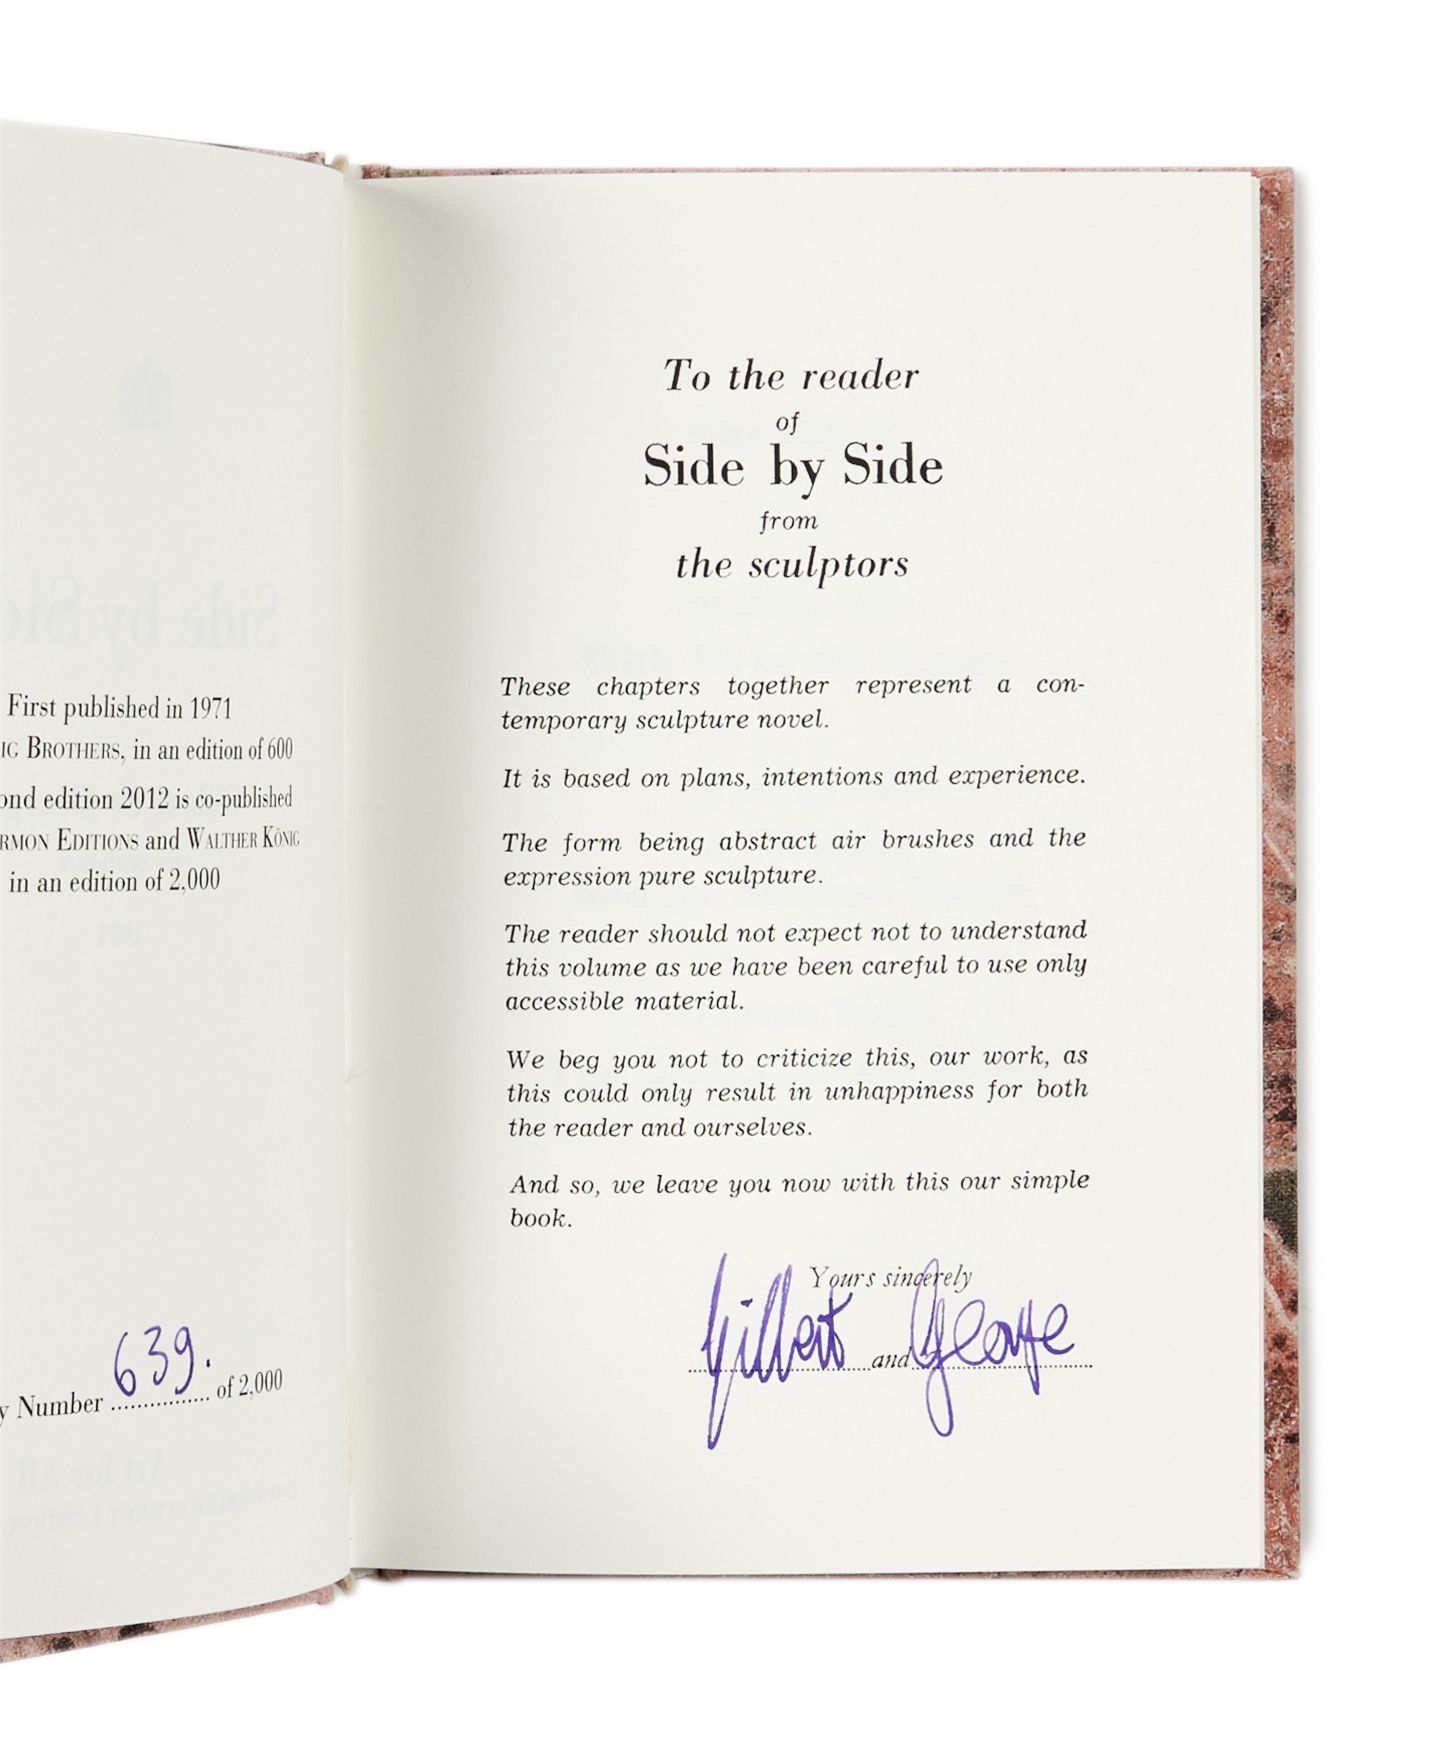 First published in 1971
IG BROTHERS, in an edition of 600
ond edition 2012 is co-published
RMON EDITIONS and WALTHER KÖNIG
in an edition of 2,000
y Number 639. of 2,000
To the reader
of
Side by Side
from
the sculptors
These chapters together represent a con-
temporary sculpture novel.
It is based on plans, intentions and experience.
The form being abstract air brushes and the
expression pure sculpture.
The reader should not expect not to understand
this volume as we have been careful to use only
accessible material.
We beg you not to criticize this, our work, as
this could only result in unhappiness for both
the reader and ourselves.
And so, we leave you now with this our simple
book.
Yours sincerely
Gilbert and George